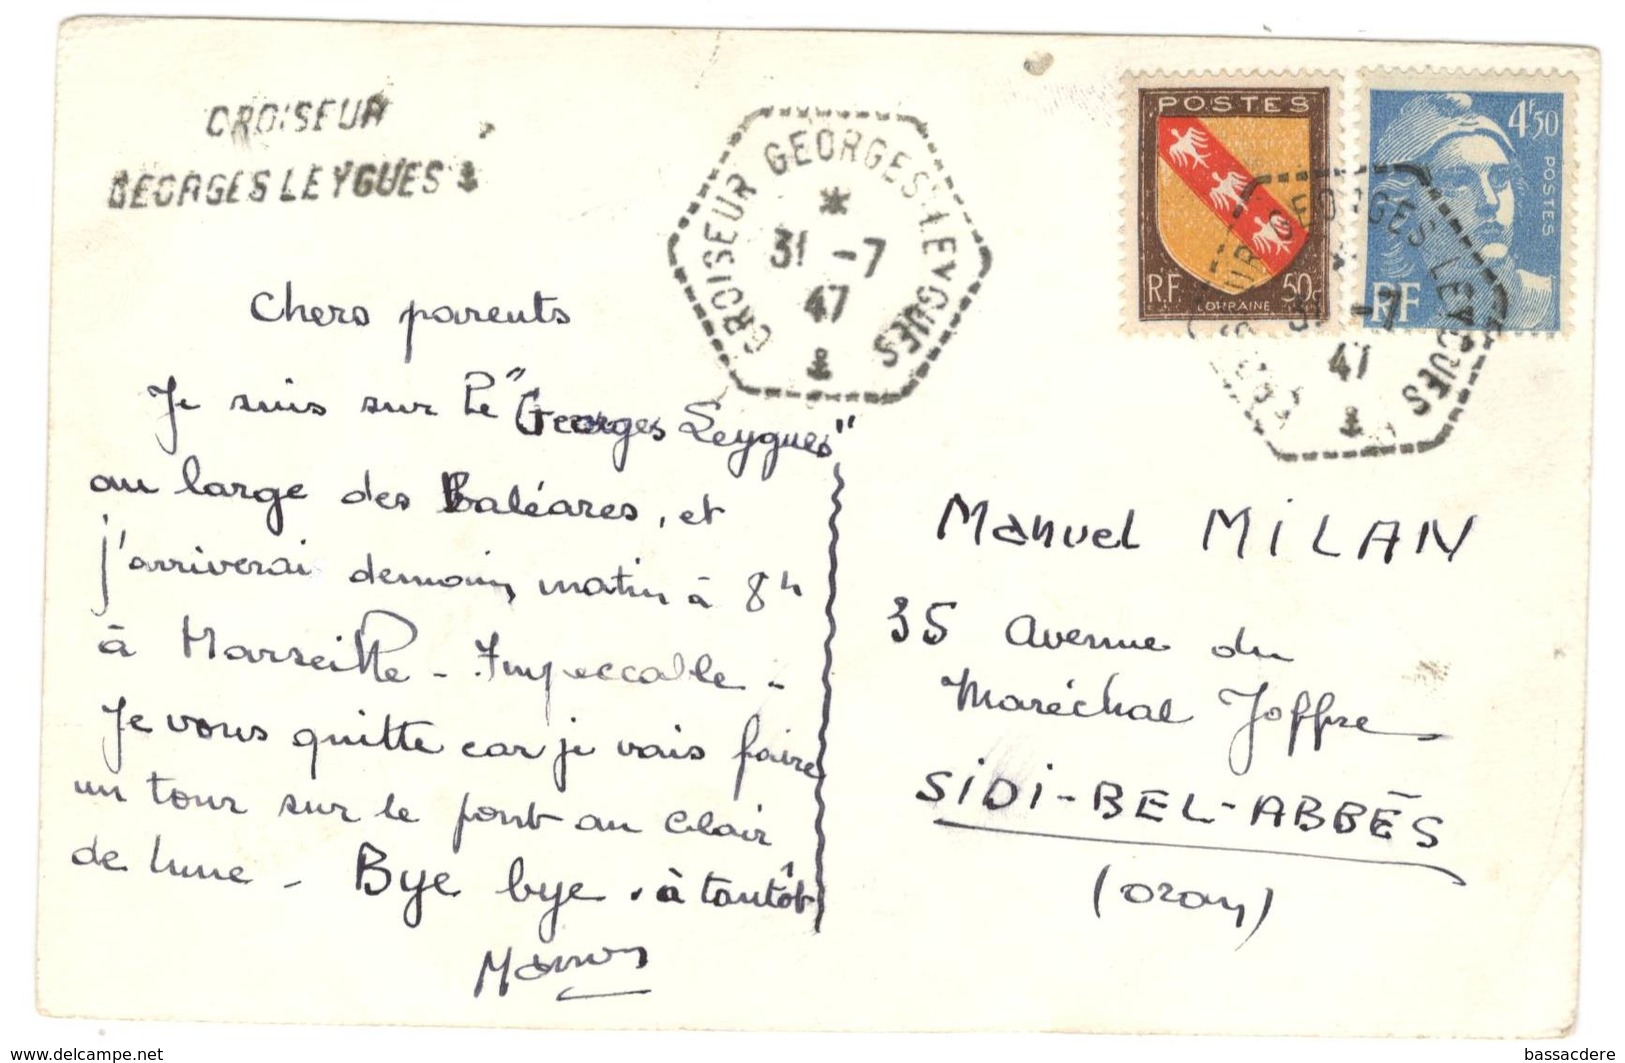 CROISEUR
GEORGES LEYGUES
CROISEUR GEORGES LEYGUES
31 -7
47
POSTES
RF
LORRAINE
50c
4F50
POSTES
RF
CROISEUR GEORGES LEYGUES
31 -7
47
Chers parents
Je suis sur le "Georges Leygues"
au large des Baléares, et
j'arriverai demain matin à 8h
à Marseille - Impeccable -
Je vous quitte car je vais faire
un tour sur le pont au clair
de lune - Bye bye. à tantôt
Manuel MILAN
35 Avenue du
Maréchal Joffre
SIDI-BEL-ABBÈS
(Oran)
www.delcampe.net
bassacdere